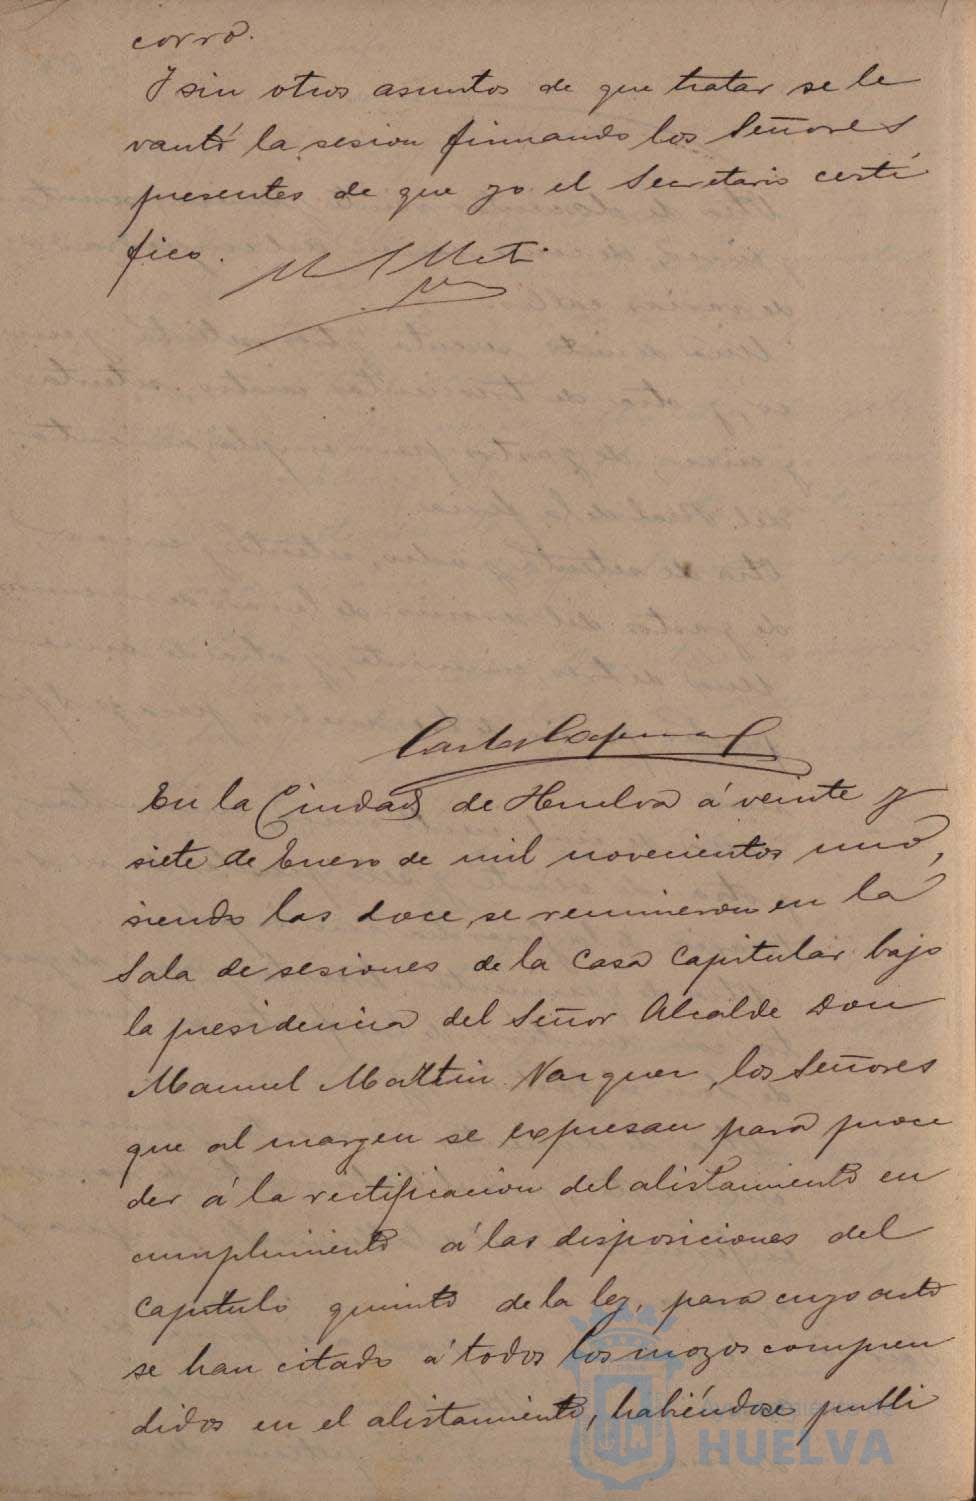 corro.
Y sin otros asuntos de que tratar se le
vantó la sesion firmando los Señores
presentes de que yo el Secretario certi
fico.
En la Ciudad de Huelva á veinte y
siete de Enero de mil novecientos uno,
siendo las doce, se reunieron en la
Sala de sesiones de la Casa Capitular bajo
la presidencia del Señor Alcalde Don
Manuel Martin Vazquez, los Señores
que al margen se expresan para proce
der á la rectificacion del alistamiento en
cumplimiento á las disposiciones del
Capitulo quinto de la ley, para cuyo acto
se han citado á todos los mozos compren
didos en el alistamiento, habiéndose publi
HUELVA